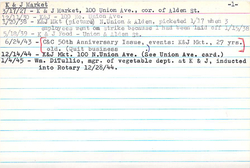 K & J Market -1-
3/17/27 - K & J Market, 100 Union Ave., cor. of Alden st.
K & J Mkt. 100 No. Union Ave.
1/20/38 - K&J Mkt (pictured N.Union & Alden, picketed 1/17 when 3
employees went on strike because 1 had been laid off 1/15/38
K & J Food - Union & Alden st.
6/24/43 - C&C 50th Anniversary Issue, events: K&J Mkt., 27 yrs.
old. (Quit business )
12/14/44 - K&J Mkt. 100 N.Union Ave. (See Union Ave. card.)
1/4/45 - Wm. DiTullio, mgr. of vegetable dept. at K & J, inducted
into Rotary 12/28/44.